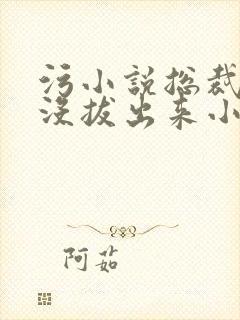 污小说总裁
没拔出来小
阿茹